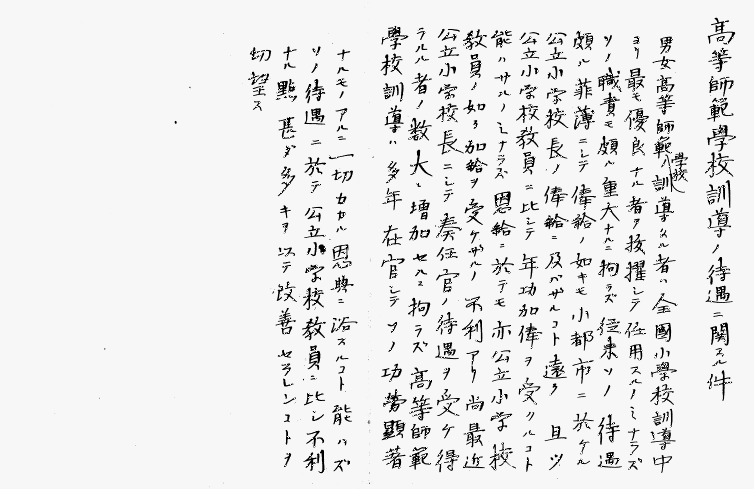 高等師範學校訓導ノ待遇ニ関スル件
男女高等師範學校ノ訓導タル者ハ全國小學校訓導中
ヨリ最モ優良ナル者ヲ抜擢シテ任用スルノミナラズ
ソノ職責モ頗ル重大ナルニ拘ラズ従来ソノ待遇
頗ル菲薄ニシテ俸給ノ如キモ小都市ニ於ケル
公立小学校長ノ俸給ニ及バザルコト遠ク且ツ
公立小学校教員ニ比シテ年功加俸ヲ受クルコト
能ハザルノミナラズ恩給ニ於テモ亦公立小学校
教員ノ如ク加給ヲ受ケザルノ不利アリ尚最近
公立小学校長ニシテ奏任官ノ待遇ヲ受ケ得
ラルル者ノ数大ニ増加セルニ拘ラズ高等師範
學校訓導ハ多年在官シテソノ功勞顕著
ナルモノアルニ一切カカル恩典ニ浴スルコト能ハズ
ソノ待遇ニ於テ公立小学校教員ニ比シ不利
ナル點甚ダ多キヲ以テ改善セラレンコトヲ
切望ス